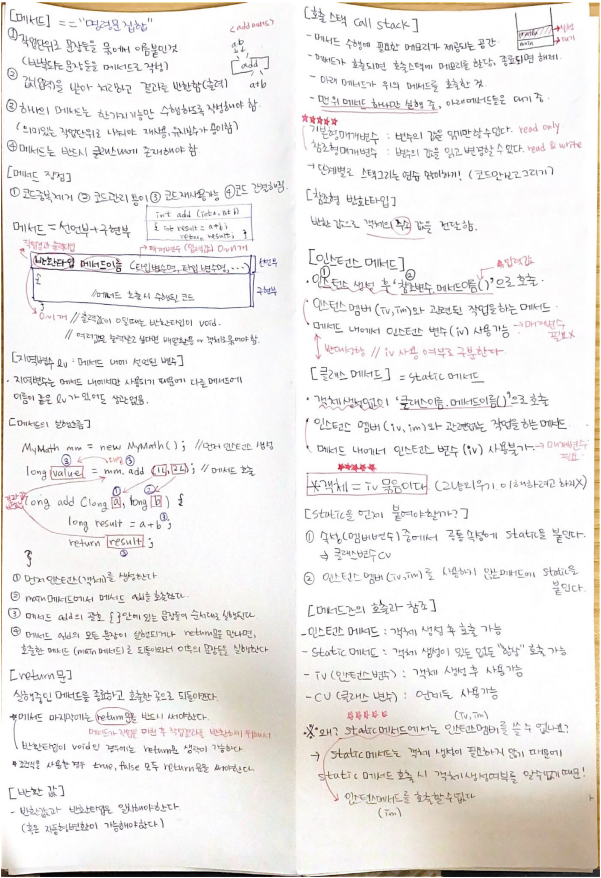 [메서드] == "명령문 집합"
① 작업단위로 문장들을 묶어서 이름붙인것
(반복되는 문장들을 메서드로 작성)
② 값(입력)을 받아 처리하고 결과를 반환함(출력)
<add메서드>
a b
add
a+b
③ 하나의 메서드는 한가지 기능만 수행하도록 작성해야 함
(의미있는 작업단위로 나눠야 재사용, 유지보수가 용이함)
④ 메서드는 반드시 클래스내에 존재해야 함
[메서드 장점]
① 코드중복제거 ② 코드관리 용이 ③ 코드재사용가능 ④ 코드 간결해짐.
메서드 = 선언부 + 구현부
int add (int a, int b)
{ int result = a+b;
return result; }
작업결과 출력타입
매개변수 (입력값) 0~여러개
반환타입 메서드이름 (타입 변수명, 타입 변수명, ...)
선언부
{
//메서드 호출시 수행될 코드
}
구현부
0~1개 // 출력값이 0일때는 반환타입이 void.
// 여러값을 출력하고 싶다면 배열활용 or 객체로 묶어야 함.
[지역변수 lv : 메서드 내에 선언된 변수]
· 지역변수는 메서드 내에서만 사용되기 때문에 다른 메서드에
이름이 같은 lv가 있어도 상관없음.
[메서드의 실행흐름]
MyMath mm = new MyMath(); //먼저 인스턴스 생성
③ 대입 ③
long value = mm.add (1L, 2L); // 메서드 호출
① ②
long add (long a, long b) {
long result = a+b;
return result;
}
① 먼저 인스턴스(객체)를 생성한다
② main메서드에서 메서드 add를 호출한다.
③ 메서드 add의 괄호 { } 안에 있는 문장들이 순서대로 실행된다
④ 메서드 add의 모든 문장이 실행되거나 return문을 만나면,
호출한 메서드 (main메서드)로 되돌아와서 이후의 문장들을 실행한다
[return문]
실행중인 메서드를 종료하고 호출한 곳으로 되돌아간다
*메서드 마지막에는 return문을 반드시 써야한다.
메서드가 작업을 마친 후 작업결과를 반환하기 위해서
반환타입이 void인 경우에는 return문 생략이 가능하다
*조건식을 사용한 경우 true, false 모두 return문을 써야한다.
[반환 값]
- 반환값과 반환타입은 일치해야한다
(혹은 자동형변환이 가능해야한다)
[호출스택 Call stack]
- 메서드 수행에 필요한 메모리가 제공되는 공간.
- 메서드가 호출되면 호출스택에 메모리를 할당, 종료되면 해제.
- 아래 메서드가 위의 메서드를 호출한 것.
- 맨 위 메서드 하나만 실행 중, 아래 메서드들은 대기 중.
main
실행
대기
★★★★★
기본형매개변수 : 변수의 값을 읽기만 할 수 있다. read only
참조형매개변수 : 변수의 값을 읽고 변경할 수 있다. read & write
→ 단계별로 스택그리는 연습 많이하기! (코드안보고 그리기)
[참조형 반환타입]
반환 값으로 객체의 주소 값을 전달함.
[인스턴스 메서드]
입력값
① ②
· 인스턴스 생성 후 '참조변수.메서드이름()'으로 호출.
· 인스턴스 멤버 (iv, im)와 관련된 작업을 하는 메서드.
· 메서드 내에서 인스턴스 변수 (iv) 사용가능 → 매개변수 필요X
// iv 사용 여부로 구분한다.
[클래스 메서드] = static 메서드
· 객체생성없이 '클래스이름.메서드이름()'으로 호출
· 인스턴스 멤버 (iv, im)와 관련없는 작업을 하는 메서드.
· 메서드 내에서 인스턴스 변수 (iv) 사용불가. → 매개변수 필요
★★★★★
*객체 = iv 묶음이다 (그냥외우기, 이해하려고 하지X)
[static을 언제 붙여야할까?]
① 속성(멤버변수) 중에서 공통 속성에 static을 붙인다.
⇒ 클래스변수 cv
② 인스턴스 멤버 (iv, im)를 사용하지 않는 메서드에 static을
붙인다.
[메서드간의 호출과 참조]
- 인스턴스 메서드 : 객체 생성 후 호출 가능
- static 메서드 : 객체 생성이 있든 없든 "항상" 호출 가능
- iv (인스턴스 변수) : 객체 생성 후 사용가능
- cv (클래스 변수) : 언제든 사용가능
★★★★★
(iv, im)
※ 왜? static메서드에서는 인스턴스멤버를 쓸 수 없나요?
→ static메서드는 객체 생성이 필요하지 않기 때문에
static 메서드 호출 시 객체생성여부를 알수없기 때문!
→ 인스턴스메서드를 호출할수없다
(im)